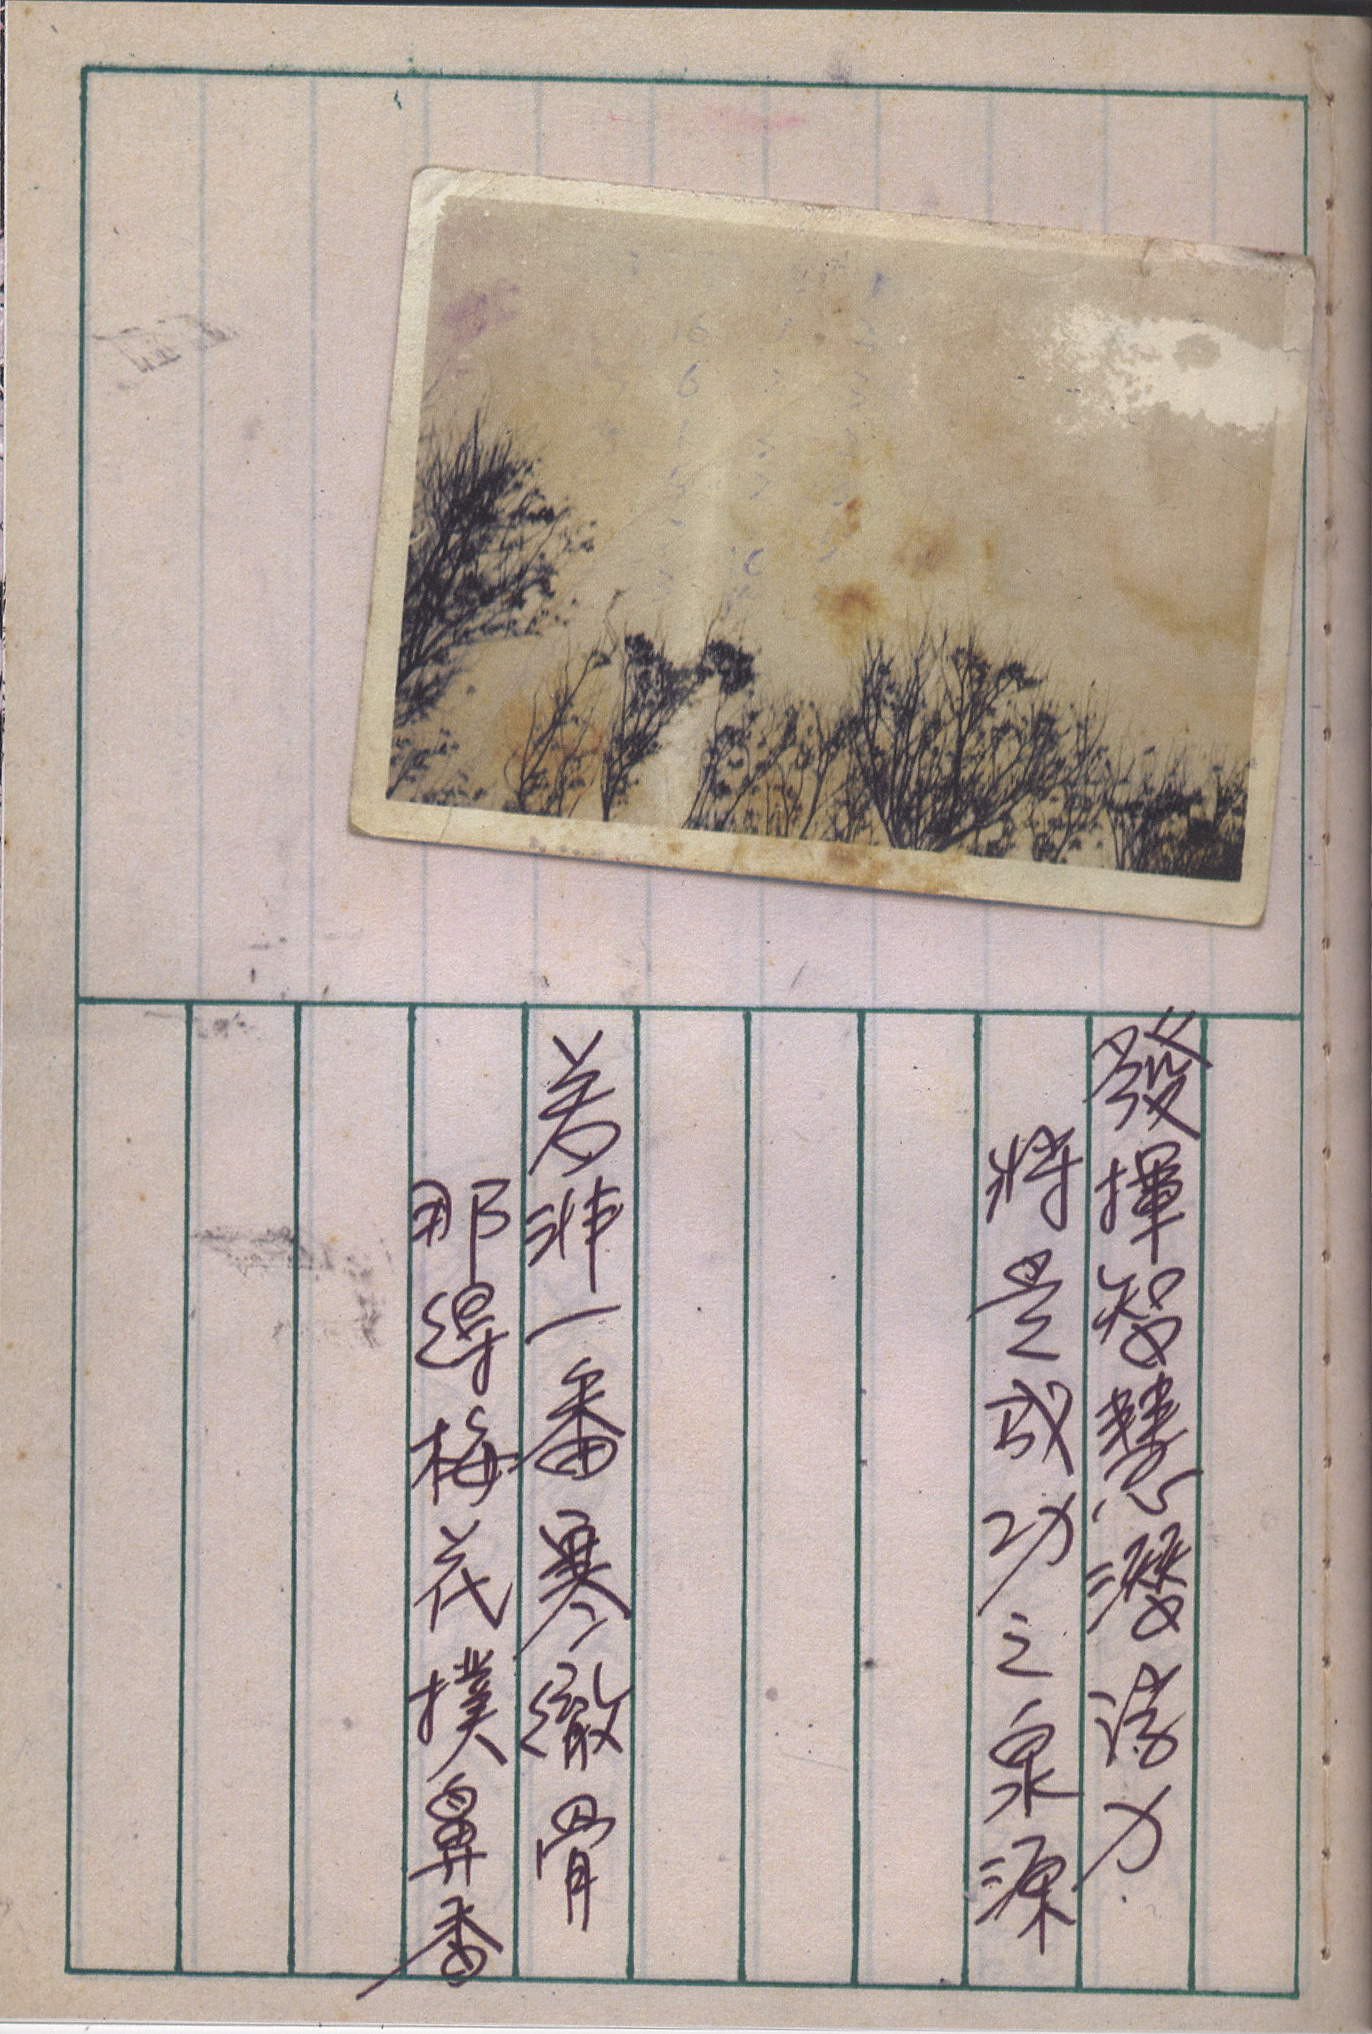 發揮智慧潛力
將是成功之泉源
若非一番寒徹骨
那得梅花撲鼻香